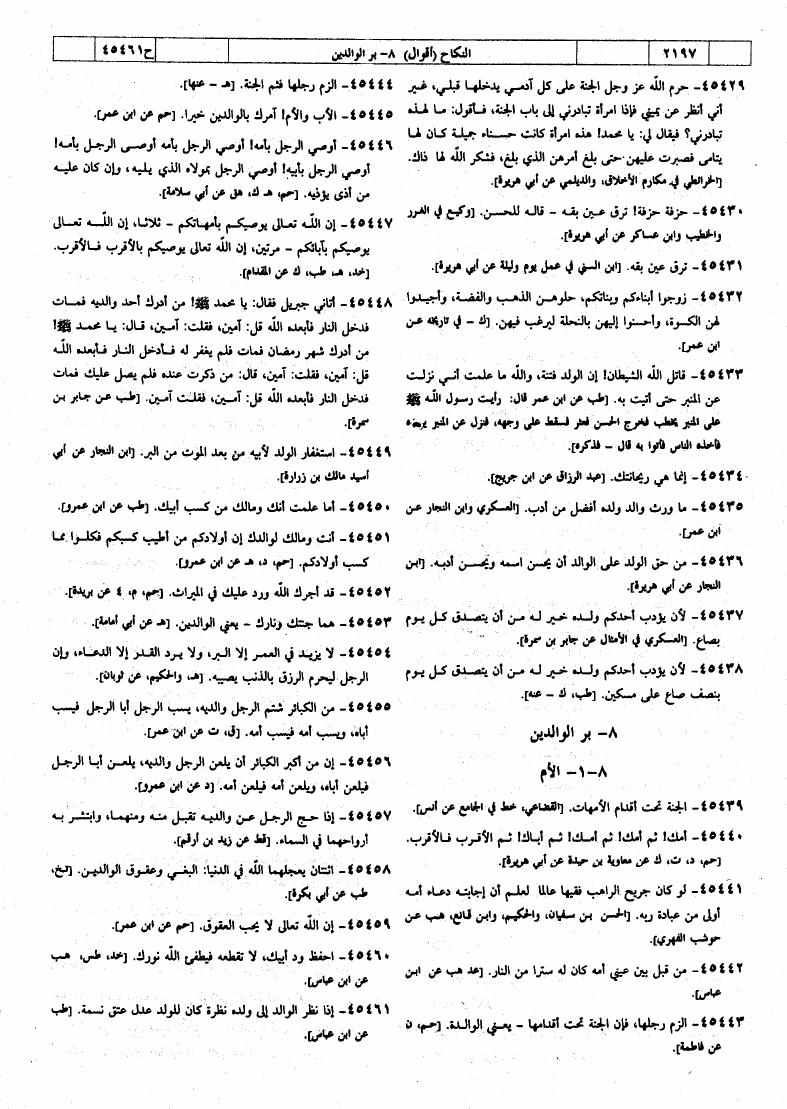 ٢١٩٧
النكاح (أقوال) ٨- بر الوالدين
ح٤٥٤٦١
٤٥٤٢٩- حرم الله عز وجل الجنة على كل آدمي يدخلها قبلي، غير
أني أنظر عن يميني فإذا امرأة تبادرني إلى باب الجنة، فأقول: ما لهذه
تبادرني؟ فيقال لي: يا محمد! هذه امرأة كانت حسناء جميلة كان لها
يتامى فصبرت عليهن حتى بلغ أمرهن الذي بلغ، فشكر الله لها ذاك.
[الخرائطي في مكارم الأخلاق، والديلمي عن أبي هريرة].
٤٥٤٣٠- حزقة حزقة! ترق عين بقه - قاله للحسن. [وكيع في الغرر
والخطيب وابن عساكر عن أبي هريرة].
٤٥٤٣١- ترق عين بقه. [ابن السني في عمل يوم وليلة عن أبي هريرة].
٤٥٤٣٢- زوجوا أبناءكم وبناتكم، حلوهن الذهب والفضة، وأجيدوا
لهن الكسوة، وأحسنوا إليهن بالنحلة ليرغب فيهن. [ك - في تاريخه عن
ابن عمر].
٤٥٤٣٣- قاتل الله الشيطان! إن الولد فتنة، والله ما علمت أني نزلت
عن المنبر حتى أتيت به. [طب عن ابن عمر قال: رأيت رسول الله ﷺ
على المنبر يخطب فخرج الحسن فعثر فسقط على وجهه، فنزل عن المنبر يريده
فأخذه الناس فأتوا به قال - فذكره].
٤٥٤٣٤- إنما هي ريحانتك. [عبد الرزاق عن ابن جريج].
٤٥٤٣٥- ما ورث والد ولده أفضل من أدب. [العسكري وابن النجار عن
ابن عمر].
٤٥٤٣٦- من حق الولد على الوالد أن يحسن اسمه ويحسن أدبه. [ابن
النجار عن أبي هريرة].
٤٥٤٣٧- لأن يؤدب أحدكم ولده خير له من أن يتصدق كل يوم
بصاع. [العسكري في الأمثال عن جابر بن سمرة].
٤٥٤٣٨- لأن يؤدب أحدكم ولده خير له من أن يتصدق كل يوم
بنصف صاع على مسكين. [طب، ك - عنه].
٨- بر الوالدين
٨-١- الأم
٤٥٤٣٩- الجنة تحت أقدام الأمهات. [القضاعي، خط في الجامع عن أنس].
٤٥٤٤٠- أمك! ثم أمك! ثم أمك! ثم أباك! ثم الأقرب فالأقرب.
[حم، د، ت، ك عن معاوية بن حيدة عن أبي هريرة].
٤٥٤٤١- لو كان جريج الراهب فقيها عالما لعلم أن إجابته دعاء أمه
أولى من عبادة ربه. [الحسن بن سفيان، والحكيم، وابن قانع، هب عن
حوشب الفهري].
٤٥٤٤٢- من قبل بين عيني أمه كان له سترا من النار. [عد هب عن ابن
عباس].
٤٥٤٤٣- الزم رجلها، فإن الجنة تحت أقدامها - يعني الوالدة. [حم، ن
عن فاطمة].
٤٥٤٤٤- الزم رجلها فثم الجنة. [هـ - عنها].
٤٥٤٤٥- الأب والأم! آمرك بالوالدين خيرا. [حم عن ابن عمر].
٤٥٤٤٦- أوصي الرجل بأمه! أوصي الرجل بأمه أوصي الرجل بأمه!
أوصي الرجل بأبيه! أوصي الرجل بمولاه الذي يليه، وإن كان عليه
من أذى يؤذيه. [حم، هـ ك، هق عن أبي سلامة].
٤٥٤٤٧- إن الله تعالى يوصيكم بأمهاتكم - ثلاثا، إن الله تعالى
يوصيكم بآبائكم - مرتين، إن الله تعالى يوصيكم بالأقرب فالأقرب.
[خد، هـ، طب، ك عن المقدام].
٤٥٤٤٨- أتاني جبريل فقال: يا محمد ﷺ! من أدرك أحد والديه فمات
فدخل النار فأبعده الله قل: آمين، فقلت: آمين، قال: يا محمد ﷺ!
من أدرك شهر رمضان فمات فلم يغفر له فأدخل النار فأبعده الله
قل: آمين، فقلت: آمين، قال: من ذكرت عنده فلم يصل عليك فمات
فدخل النار فأبعده الله قل: آمين، فقلت آمين. [طب عن جابر بن
سمرة].
٤٥٤٤٩- استغفار الولد لأبيه من بعد الموت من البر. [ابن النجار عن أبي
أسيد مالك بن زرارة].
٤٥٤٥٠- أما علمت أنك ومالك من كسب أبيك. [طب عن ابن عمرو].
٤٥٤٥١- أنت ومالك لوالدك إن أولادكم من أطيب كسبكم فكلوا مما
كسب أولادكم. [حم، د، هـ عن ابن عمرو].
٤٥٤٥٢- قد أجرك الله ورد عليك في الميراث. [حم، م، ٤ عن بريدة].
٤٥٤٥٣- هما جنتك ونارك - يعني الوالدين. [هـ عن أبي أمامة].
٤٥٤٥٤- لا يزيد في العمر إلا البر، ولا يرد القدر إلا الدعاء، وإن
الرجل ليحرم الرزق بالذنب يصيبه. [هـ، والحكيم، عن ثوبان].
٤٥٤٥٥- من الكبائر شتم الرجل والديه، يسب الرجل أبا الرجل فيسب
أباه، ويسب أمه فيسب أمه. [ق، ت عن ابن عمر].
٤٥٤٥٦- إن من أكبر الكبائر أن يلعن الرجل والديه، يلعن أبا الرجل
فيلعن أباه، ويلعن أمه فيلعن أمه. [د عن ابن عمرو].
٤٥٤٥٧- إذا حج الرجل عن والديه تقبل منه ومنهما، وابتشر به
أرواحهما في السماء. [قط عن زيد بن أرقم].
٤٥٤٥٨- اثنتان يعجلهما الله في الدنيا: البغي وعقوق الوالدين. [تخ،
طب عن أبي بكرة].
٤٥٤٥٩- إن الله تعالى لا يحب العقوق. [حم عن ابن عمر].
٤٥٤٦٠- احفظ ود أبيك، لا تقطعه فيطفئ الله نورك. [خد، طس، هب
عن ابن عباس].
٤٥٤٦١- إذا نظر الوالد إلى ولده نظرة كان للولد عدل عتق نسمة. [طب
عن ابن عباس].